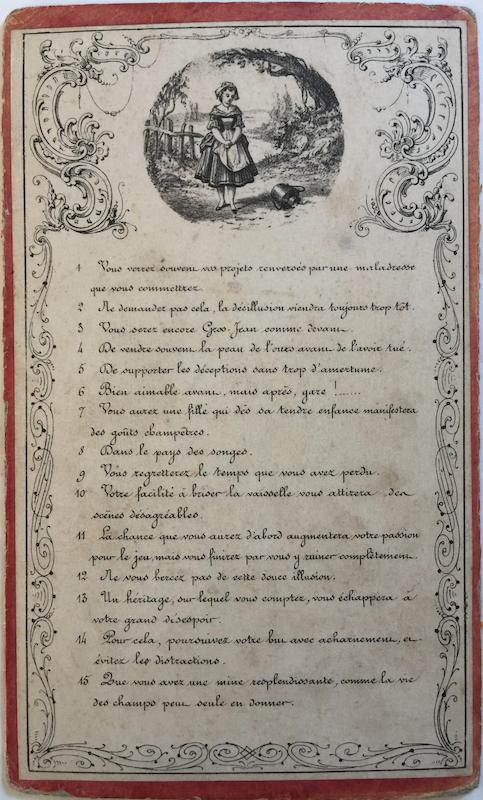 1 Vous verrez souvent vos projets renversés par une maladresse
que vous commettrez.
2 Ne demandez pas cela, la désillusion viendra toujours trop tôt.
3 Vous serez encore Gros-Jean comme devant.
4 De vendre souvent la peau de l'ours avant de l'avoir tué.
5 De supporter les déceptions sans trop d'amertume.
6 Bien aimable avant, mais après, gare !......
7 Vous aurez une fille qui dès sa tendre enfance manifestera
des goûts champêtres.
8 Dans le pays des songes.
9 Vous regretterez le temps que vous avez perdu.
10 Votre facilité à briser la vaisselle vous attirera des
scènes désagréables.
11 La chance que vous aurez d'abord augmentera votre passion
pour le jeu, mais vous finirez par vous y ruiner complètement.
12 Ne vous bercez pas de cette douce illusion.
13 Un héritage, sur lequel vous comptez, vous échappera à
votre grand désespoir.
14 Pour cela, poursuivez votre but avec acharnement, et
évitez les distractions.
15 Que vous avez une mine resplendissante, comme la vie
des champs peut seule en donner.